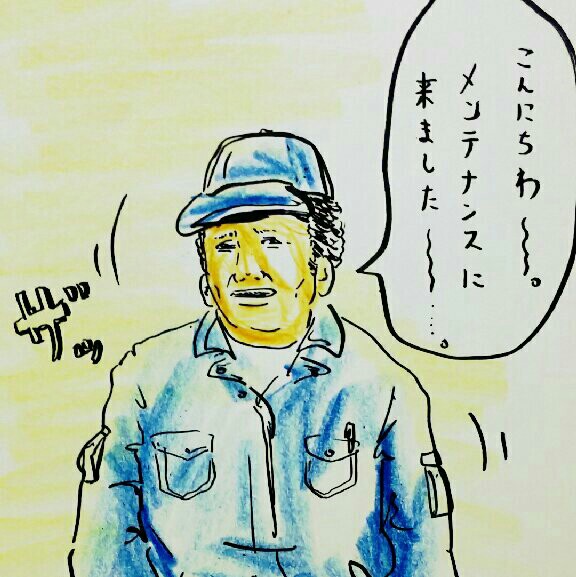 こんにちわ〜〜。
メンテナンスに
来ました〜〜……。
ザッ